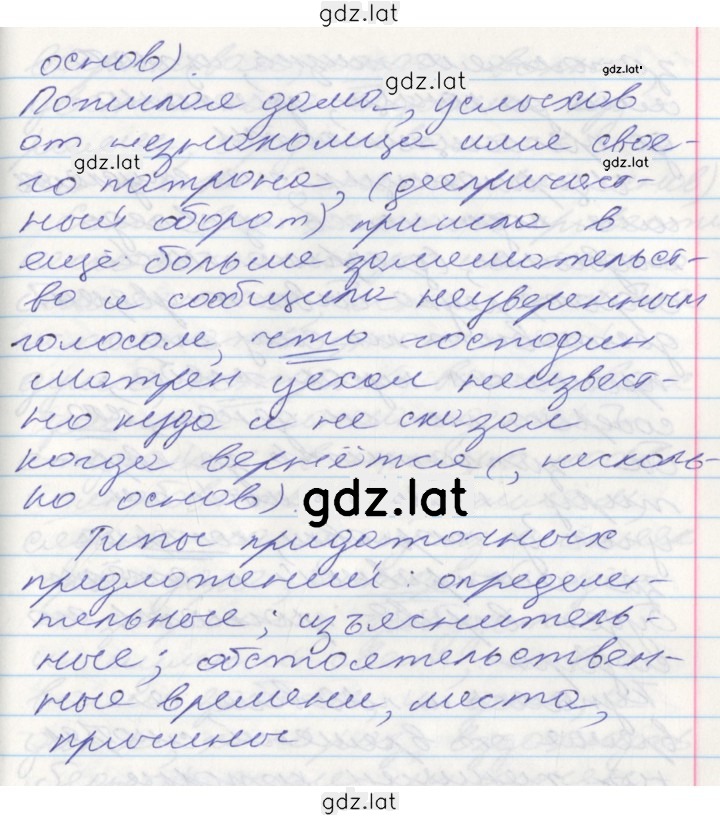 gdz.lat
основ).
gdz.lat
gdz.lat
Пожилая дама, услыхав
от незнакомца имя свое-
gdz.lat
gdz.lat
го патрона, (деепричаст-
ный оборот) пришла в
ещё больше замешательст-
во и сообщила неуверенным
голосом, что господин
Матрен уехал неизвест-
но куда и не сказал
когда вернётся (, несколь-
ко основ)
gdz.lat
Типы придаточных
предложений: определи-
тельные; изъяснитель-
ные; обстоятельствен-
ные времени, места,
причины
gdz.lat